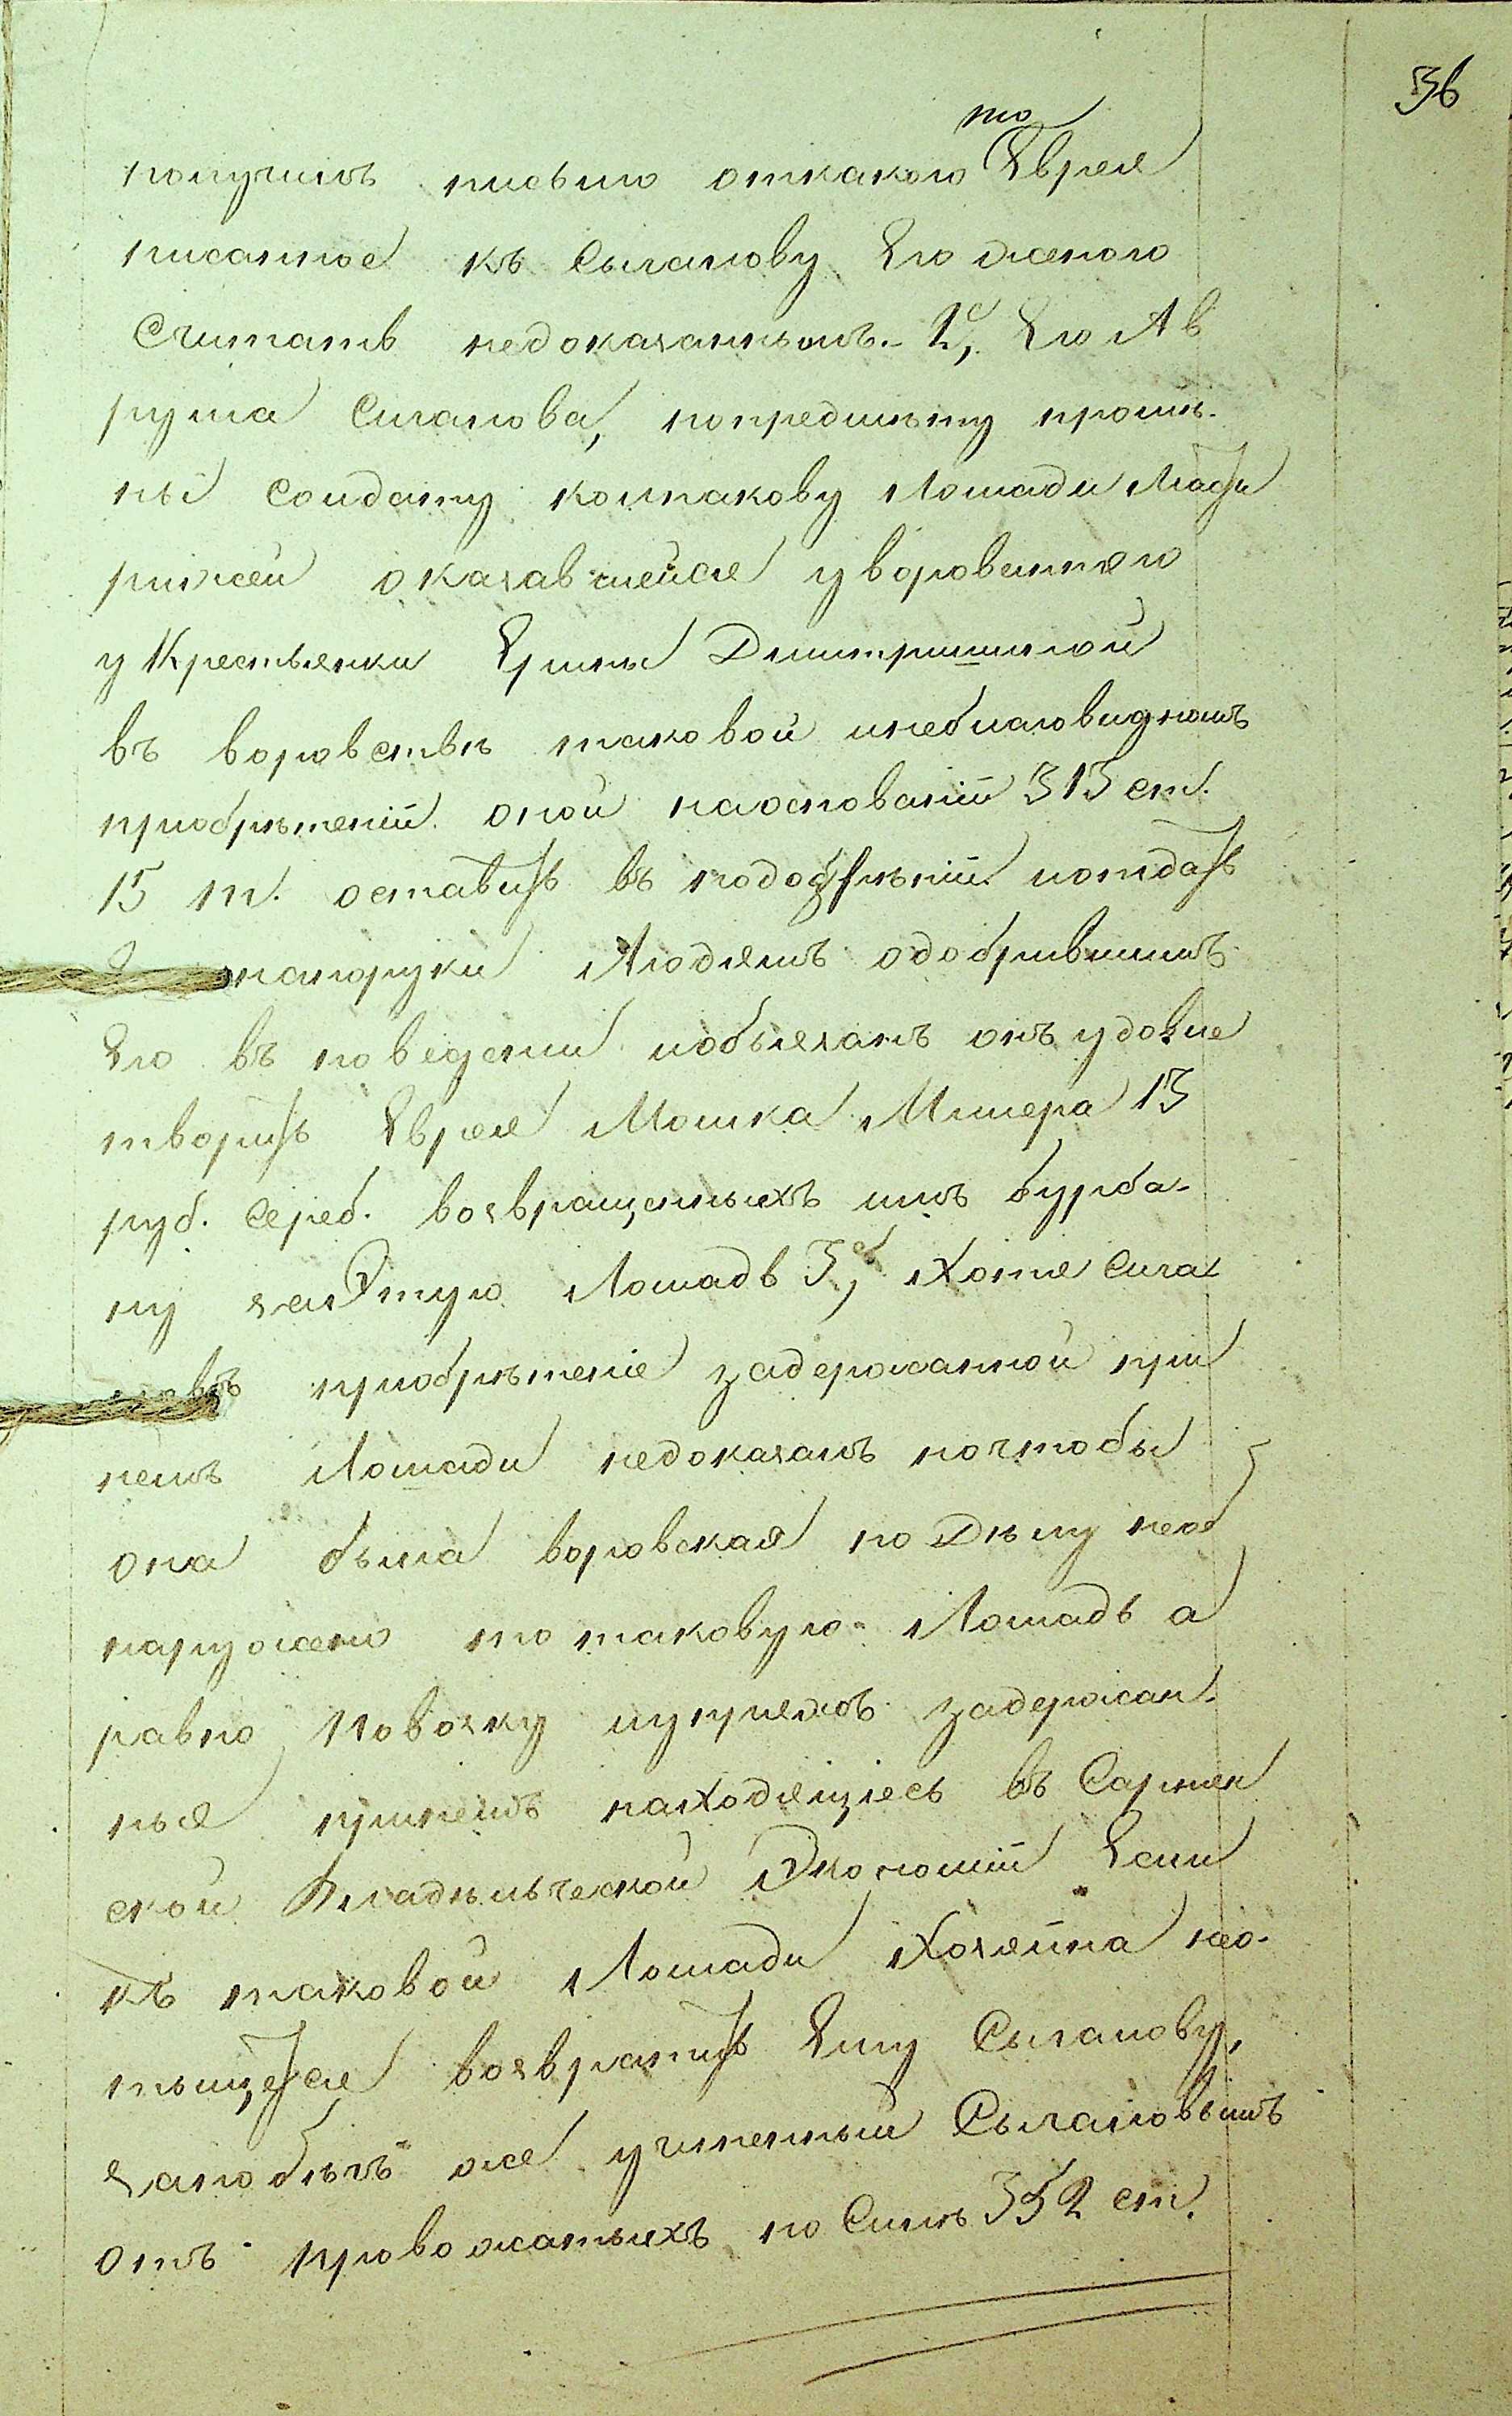 36
то
получилъ письмо откакого Еврея
писанное къ Сыганову Его женою
Считать недоказаннымъ. 2е, Его Ав
рума Сиганова, попредмѣту промѣ-
ны Солдату Колпакову Лошади Масти
рыжей оказавшейся уворованною
у Крестьянки Ерины Дмитришиной
въ воровствѣ таковой инеблаговидномъ
приобрѣтеніи оной наоснованіи 313 ст.
15 т. оставить въ подозрѣніи иотдать
напоруки Людямъ одобрившимъ
Его въ поведении иобязанъ онъ удовле
творить Еврея Мошка Милера 13
руб. сереб. возвращенныхъ имъ бурба-
ну заЭтую Лошадь 3е, Хотя Сига
новъ приобрѣтеніе задержанной при
немъ Лошади недоказалъ ночтобы
она была воровская по Дѣлу необ
наружено то таковую Лошадь а
равно Повозку иупряжъ задержан-
ные принемъ находящіесь въ Сарнен
ской Владѣльческой Экономіи Если
къ таковой Лошади Хозяина нео-
тыщется возвратить Ему Сыганову,
запобѣгъ же учиненный Сыгановымъ
отъ провожатыхъ по Силѣ 352 ст.